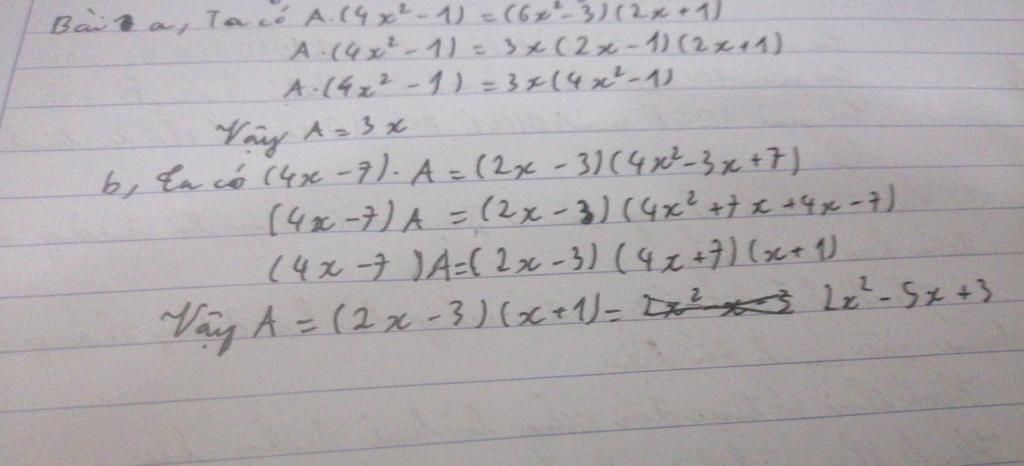 Bài a, Ta có A.(4x²-1) = (6x²-3)(2x+1)
A.(4x²-1) = 3x(2x-1)(2x+1)
A.(4x²-1) = 3x(4x²-1)
Vậy A = 3x
b, Ta có (4x-7).A = (2x-3)(4x²-3x+7)
(4x-7)A = (2x-3)(4x²+7x+4x-7)
(4x-7)A=(2x-3)(4x+7)(x+1)
Vậy A = (2x-3)(x+1)= 2x²-5x+3